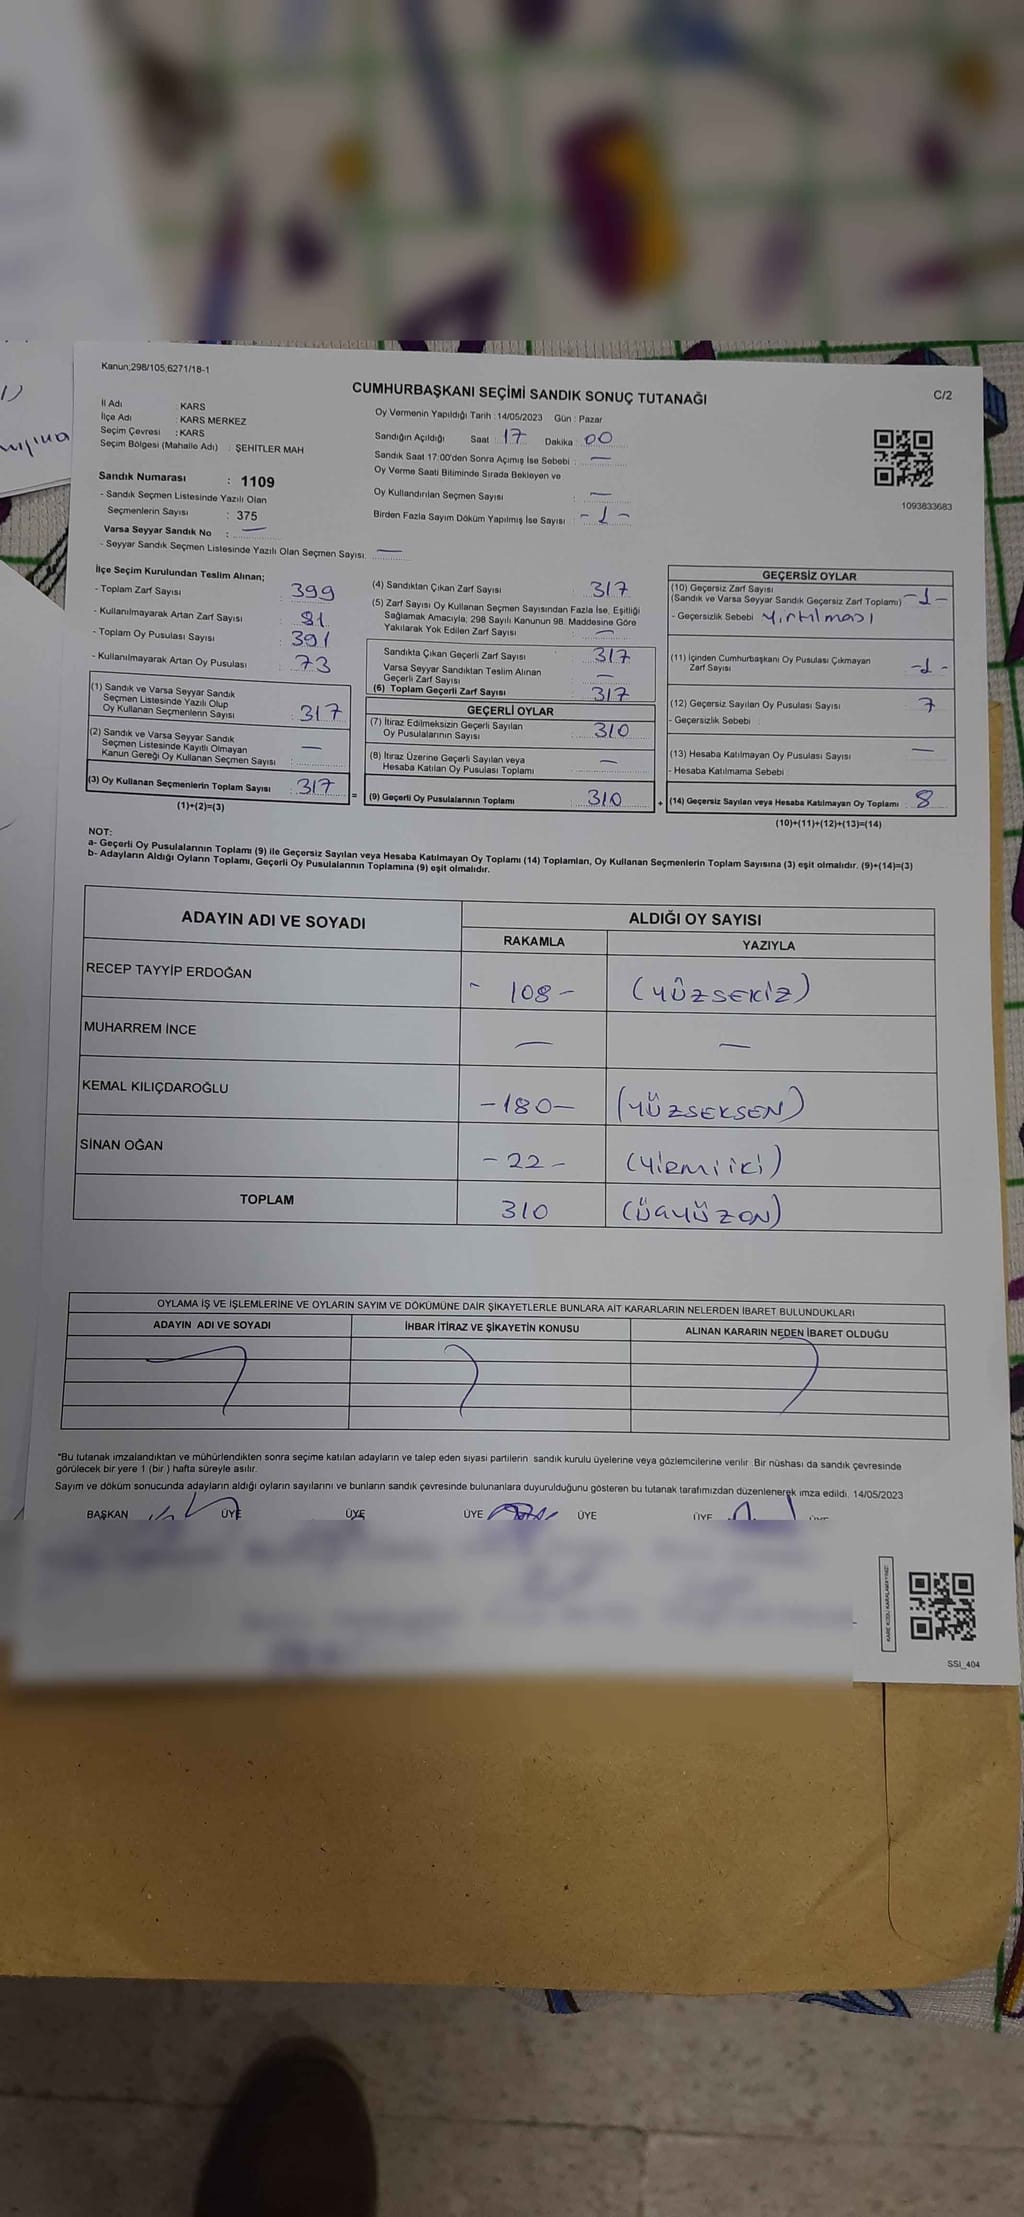 Kanun;298/105,6271/18-1
CUMHURBAŞKANI SEÇİMİ SANDIK SONUÇ TUTANAĞI
C/2
İl Adı : KARS
İlçe Adı : KARS MERKEZ
Seçim Çevresi : KARS
Seçim Bölgesi (Mahalle Adı) : ŞEHİTLER MAH
Sandık Numarası : 1109
- Sandık Seçmen Listesinde Yazılı Olan
Seçmenlerin Sayısı : 375
Varsa Seyyar Sandık No : —
- Seyyar Sandık Seçmen Listesinde Yazılı Olan Seçmen Sayısı: —
Oy Vermenin Yapıldığı Tarih : 14/05/2023 Gün : Pazar
Sandığın Açıldığı Saat : 17 Dakika : 00
Sandık Saat 17:00'den Sonra Açımış İse Sebebi : —
Oy Verme Saati Bitiminde Sırada Bekleyen ve
Oy Kullandırılan Seçmen Sayısı : —
Birden Fazla Sayım Döküm Yapılmış İse Sayısı : -1-
1093833683
İlçe Seçim Kurulundan Teslim Alınan;
- Toplam Zarf Sayısı : 399
- Kullanılmayarak Artan Zarf Sayısı : 81
- Toplam Oy Pusulası Sayısı : 391
- Kullanılmayarak Artan Oy Pusulası : 73
(1) Sandık ve Varsa Seyyar Sandık
Seçmen Listesinde Yazılı Olup
Oy Kullanan Seçmenlerin Sayısı : 317
(2) Sandık ve Varsa Seyyar Sandık
Seçmen Listesinde Kayıtlı Olmayan
Kanun Gereği Oy Kullanan Seçmen Sayısı : —
(3) Oy Kullanan Seçmenlerin Toplam Sayısı : 317
(1)+(2)=(3)
(4) Sandıktan Çıkan Zarf Sayısı : 317
(5) Zarf Sayısı Oy Kullanan Seçmen Sayısından Fazla İse, Eşitliği
Sağlamak Amacıyla; 298 Sayılı Kanunun 98. Maddesine Göre
Yakılarak Yok Edilen Zarf Sayısı : —
Sandıkta Çıkan Geçerli Zarf Sayısı : 317
Varsa Seyyar Sandıktan Teslim Alınan
Geçerli Zarf Sayısı : —
(6) Toplam Geçerli Zarf Sayısı : 317
GEÇERLİ OYLAR
(7) İtiraz Edilmeksizin Geçerli Sayılan
Oy Pusulalarının Sayısı : 310
(8) İtiraz Üzerine Geçerli Sayılan veya
Hesaba Katılan Oy Pusulası Toplamı : —
= (9) Geçerli Oy Pusulalarının Toplamı : 310
GEÇERSİZ OYLAR
(10) Geçersiz Zarf Sayısı
(Sandık ve Varsa Seyyar Sandık Geçersiz Zarf Toplamı) : -1-
- Geçersizlik Sebebi : Yırtılması
(11) İçinden Cumhurbaşkanı Oy Pusulası Çıkmayan
Zarf Sayısı : -1-
(12) Geçersiz Sayılan Oy Pusulası Sayısı : 7
- Geçersizlik Sebebi :
(13) Hesaba Katılmayan Oy Pusulası Sayısı : —
- Hesaba Katılmama Sebebi :
+ (14) Geçersiz Sayılan veya Hesaba Katılmayan Oy Toplamı : 8
(10)+(11)+(12)+(13)=(14)
NOT:
a- Geçerli Oy Pusulalarının Toplamı (9) ile Geçersiz Sayılan veya Hesaba Katılmayan Oy Toplamı (14) Toplamları, Oy Kullanan Seçmenlerin Toplam Sayısına (3) eşit olmalıdır. (9)+(14)=(3)
b- Adayların Aldığı Oyların Toplamı, Geçerli Oy Pusulalarının Toplamına (9) eşit olmalıdır.
ADAYIN ADI VE SOYADI
ALDIĞI OY SAYISI
RAKAMLA YAZIYLA
RECEP TAYYİP ERDOĞAN - 108 - (YÜZSEKİZ)
MUHARREM İNCE — —
KEMAL KILIÇDAROĞLU -180- (YÜZSEKSEN)
SİNAN OĞAN -22- (YİRMİİKİ)
TOPLAM 310 (ÜÇYÜZON)
OYLAMA İŞ VE İŞLEMLERİNE VE OYLARIN SAYIM VE DÖKÜMÜNE DAİR ŞİKAYETLERLE BUNLARA AİT KARARLARIN NELERDEN İBARET BULUNDUKLARI
ADAYIN ADI VE SOYADI İHBAR İTİRAZ VE ŞİKAYETİN KONUSU ALINAN KARARIN NEDEN İBARET OLDUĞU
*Bu tutanak imzalandıktan ve mühürlendikten sonra seçime katılan adayların ve talep eden siyasi partilerin sandık kurulu üyelerine veya gözlemcilerine verilir. Bir nüshası da sandık çevresinde
görülecek bir yere 1 (bir) hafta süreyle asılır.
Sayım ve döküm sonucunda adayların aldığı oyların sayılarını ve bunların sandık çevresinde bulunanlara duyurulduğunu gösteren bu tutanak tarafımızdan düzenlenerek imza edildi. 14/05/2023
BAŞKAN ÜYE ÜYE ÜYE ÜYE ÜYE ÜYE
SSI_404